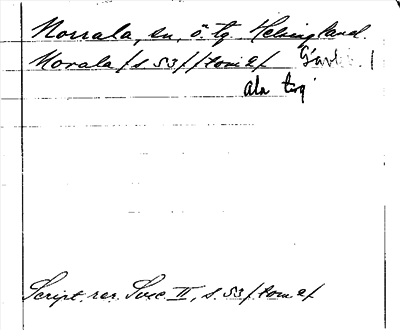 Norrala, sn, ö. tg. Helsingland.
Norala /s 53/ /tom 2/ Gävl. l
Ala tig
Script. rer. Svec. II, s. 53 /tom 2/